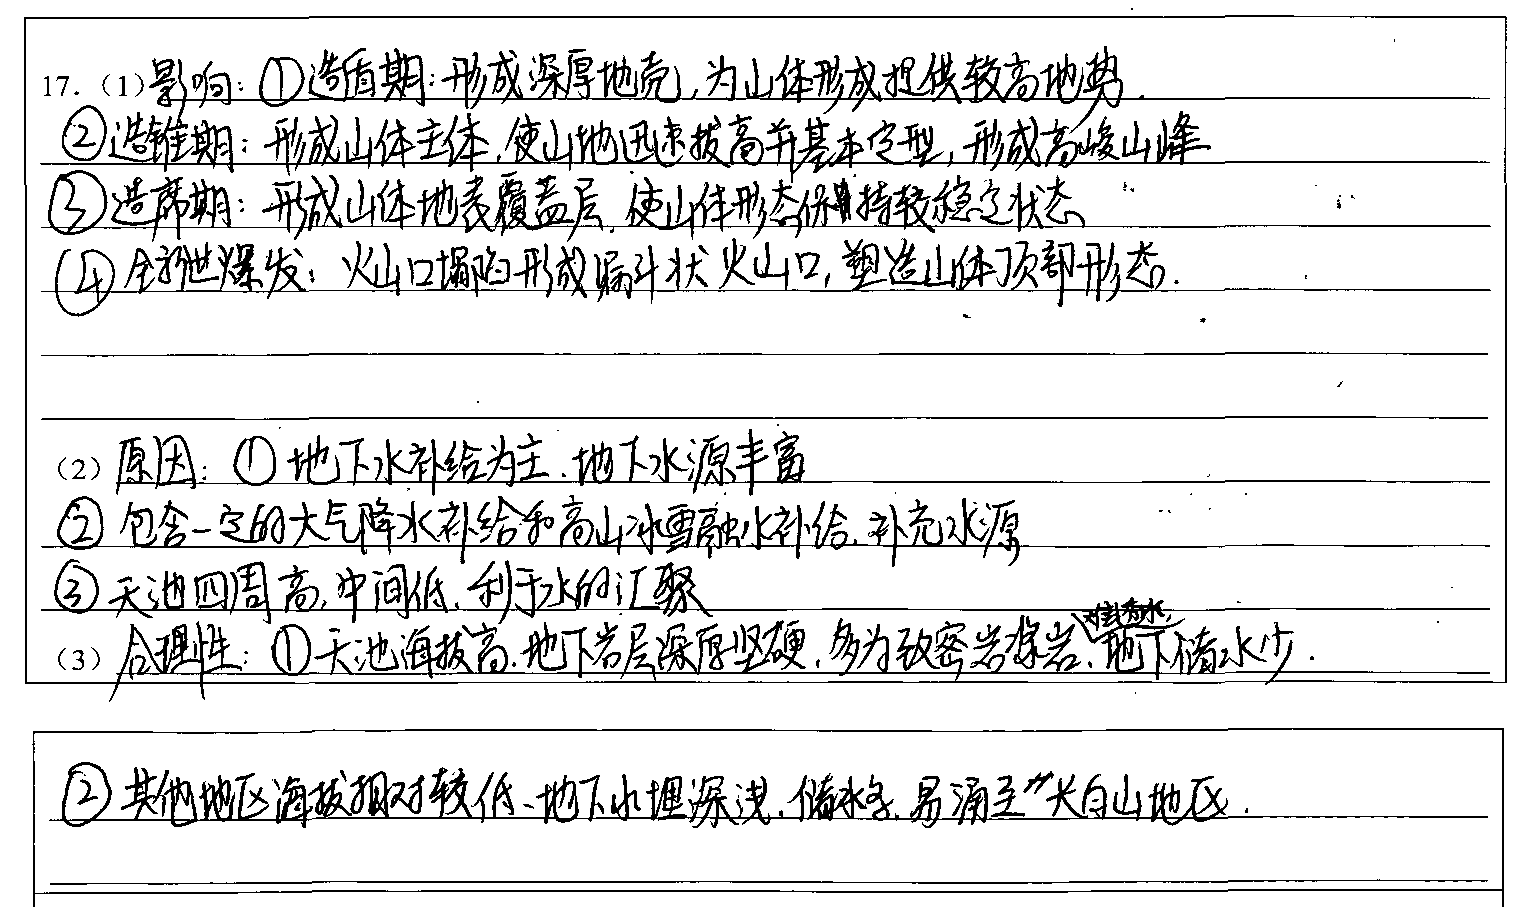 17.（1）影响：①造盾期：形成深厚地壳，为山体形成提供较高地势.
②造锥期：形成山体主体，使山地迅速拔高并基本定型，形成高峻山峰
③造席期：形成山体地表覆盖层，使山体形态保持较稳定状态
④全新世爆发：火山口塌陷形成漏斗状火山口，塑造山体顶部形态.
（2）原因：①地下水补给为主.地下水源丰富
②包含一定的大气降水补给和高山冰雪融水补给.补充水源
③天池四周高，中间低，利于水的汇聚
（3）合理性：①天池海拔高，地下岩层深厚坚硬，多为致密岩，地下储水少.
②其他地区海拔相对较低、地下水埋深浅，储水多，易涌至长白山地区.